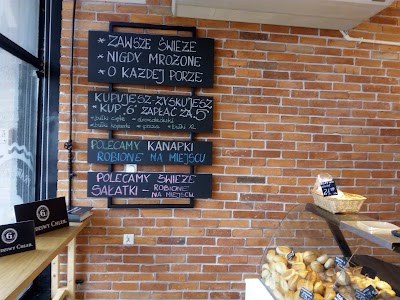 * ZAWSZE ŚWIEŻE
* NIGDY MROŻONE
* O KAŻDEJ PORZE
KUPUJESZ-ZYSKUJESZ
* KUP "6" ZAPŁAĆ ZA "5"
POLECAMY KANAPKI
ROBIONE NA MIEJSCU
POLECAMY ŚWIEŻE
SAŁATKI - ROBIONE
NA MIEJSCU